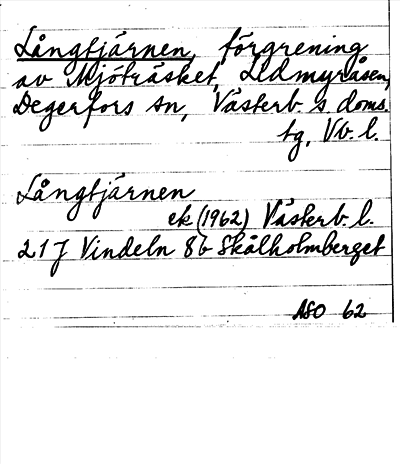 Långtjärnen, förgrening
av Mjöträsket, Ledmyråsen,
Degerfors sn, Västerb. s. doms.
tg, Vb. l.
Långtjärnen
ek (1962) Västerb. l.
21 J Vindeln 8b Skålholmberget
ASO 62